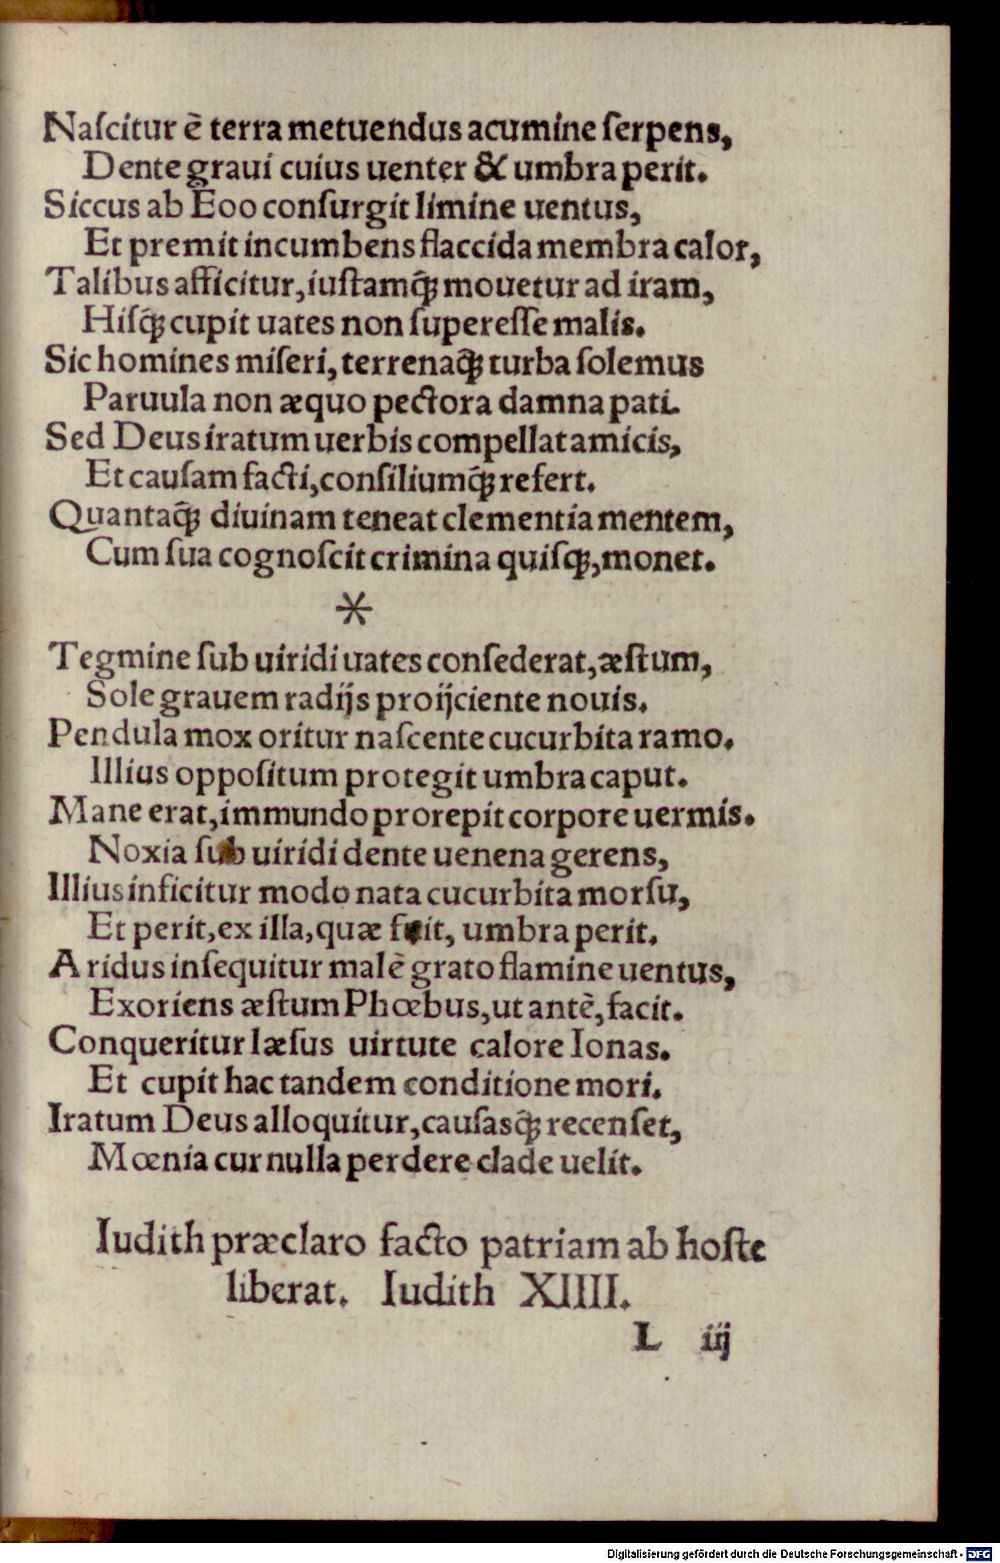 Naſcitur è terra metuendus acumine ſerpens,
Dente graui cuius uenter & umbra perit.
Siccus ab Eoo conſurgit limine uentus,
Et premit incumbens flaccida membra calor,
Talibus afficitur, iuſtamq́ꝫ mouetur ad iram,
Hiſq́ꝫ cupit uates non ſupereſſe malis.
Sic homines miſeri, terrenaq́ꝫ turba ſolemus
Paruula non æquo pectora damna pati.
Sed Deus iratum uerbis compellat amicis,
Et cauſam facti, conſiliumq́ꝫ refert.
Quantaq́ꝫ diuinam teneat clementia mentem,
Cum ſua cognoſcit crimina quiſqꝫ, monet.
*
Tegmine ſub uiridi uates conſederat, æſtum,
Sole grauem radijs proijciente nouis.
Pendula mox oritur naſcente cucurbita ramo.
Illius oppoſitum protegit umbra caput.
Mane erat, immundo prorepit corpore uermis.
Noxia ſub uiridi dente uenena gerens,
Illius inficitur modo nata cucurbita morſu,
Et perit, ex illa, quæ fuit, umbra perit.
Aridus inſequitur malè grato flamine uentus,
Exoriens æſtum Phœbus, ut antè, facit.
Conqueritur læſus uirtute calore Ionas.
Et cupit hac tandem conditione mori.
Iratum Deus alloquitur, cauſasq́ꝫ recenſet,
Mœnia cur nulla perdere clade uelit.
Iudith præclaro facto patriam ab hoſte
liberat. Iudith XIIII.
L iij
Digitalisierung gefördert durch die Deutsche Forschungsgemeinschaft - DFG